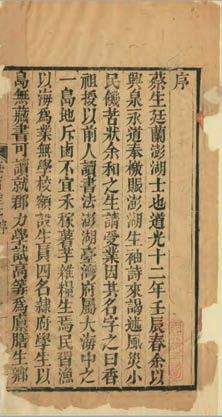 序
蔡生廷蘭澎湖士也道光十二年壬辰春余以
興泉永道奉檄賑澎湖生袖詩來謁述風災小
民饑苦狀余和之生請受業因其名字之曰香
祖授以前人讀書法澎湖臺灣府屬大海中之
一島地斥鹵不宜禾稼薯芋雜糧生焉民習漁
以海為業無學校額設生員四名隸府學生以
島無藏書可讀就郡力學試高等為廩膳生鄉